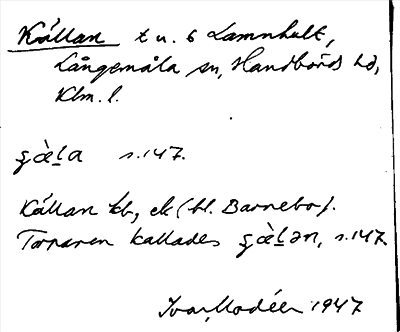 Källan t u. 6 Lamnhult,
Långemåla sn, Handbörds hd,
Klm. l.
s.147.
Källan kb, ek (bl. Barnebo).
Torparen kallades s.147
Ivar Modéer 1947